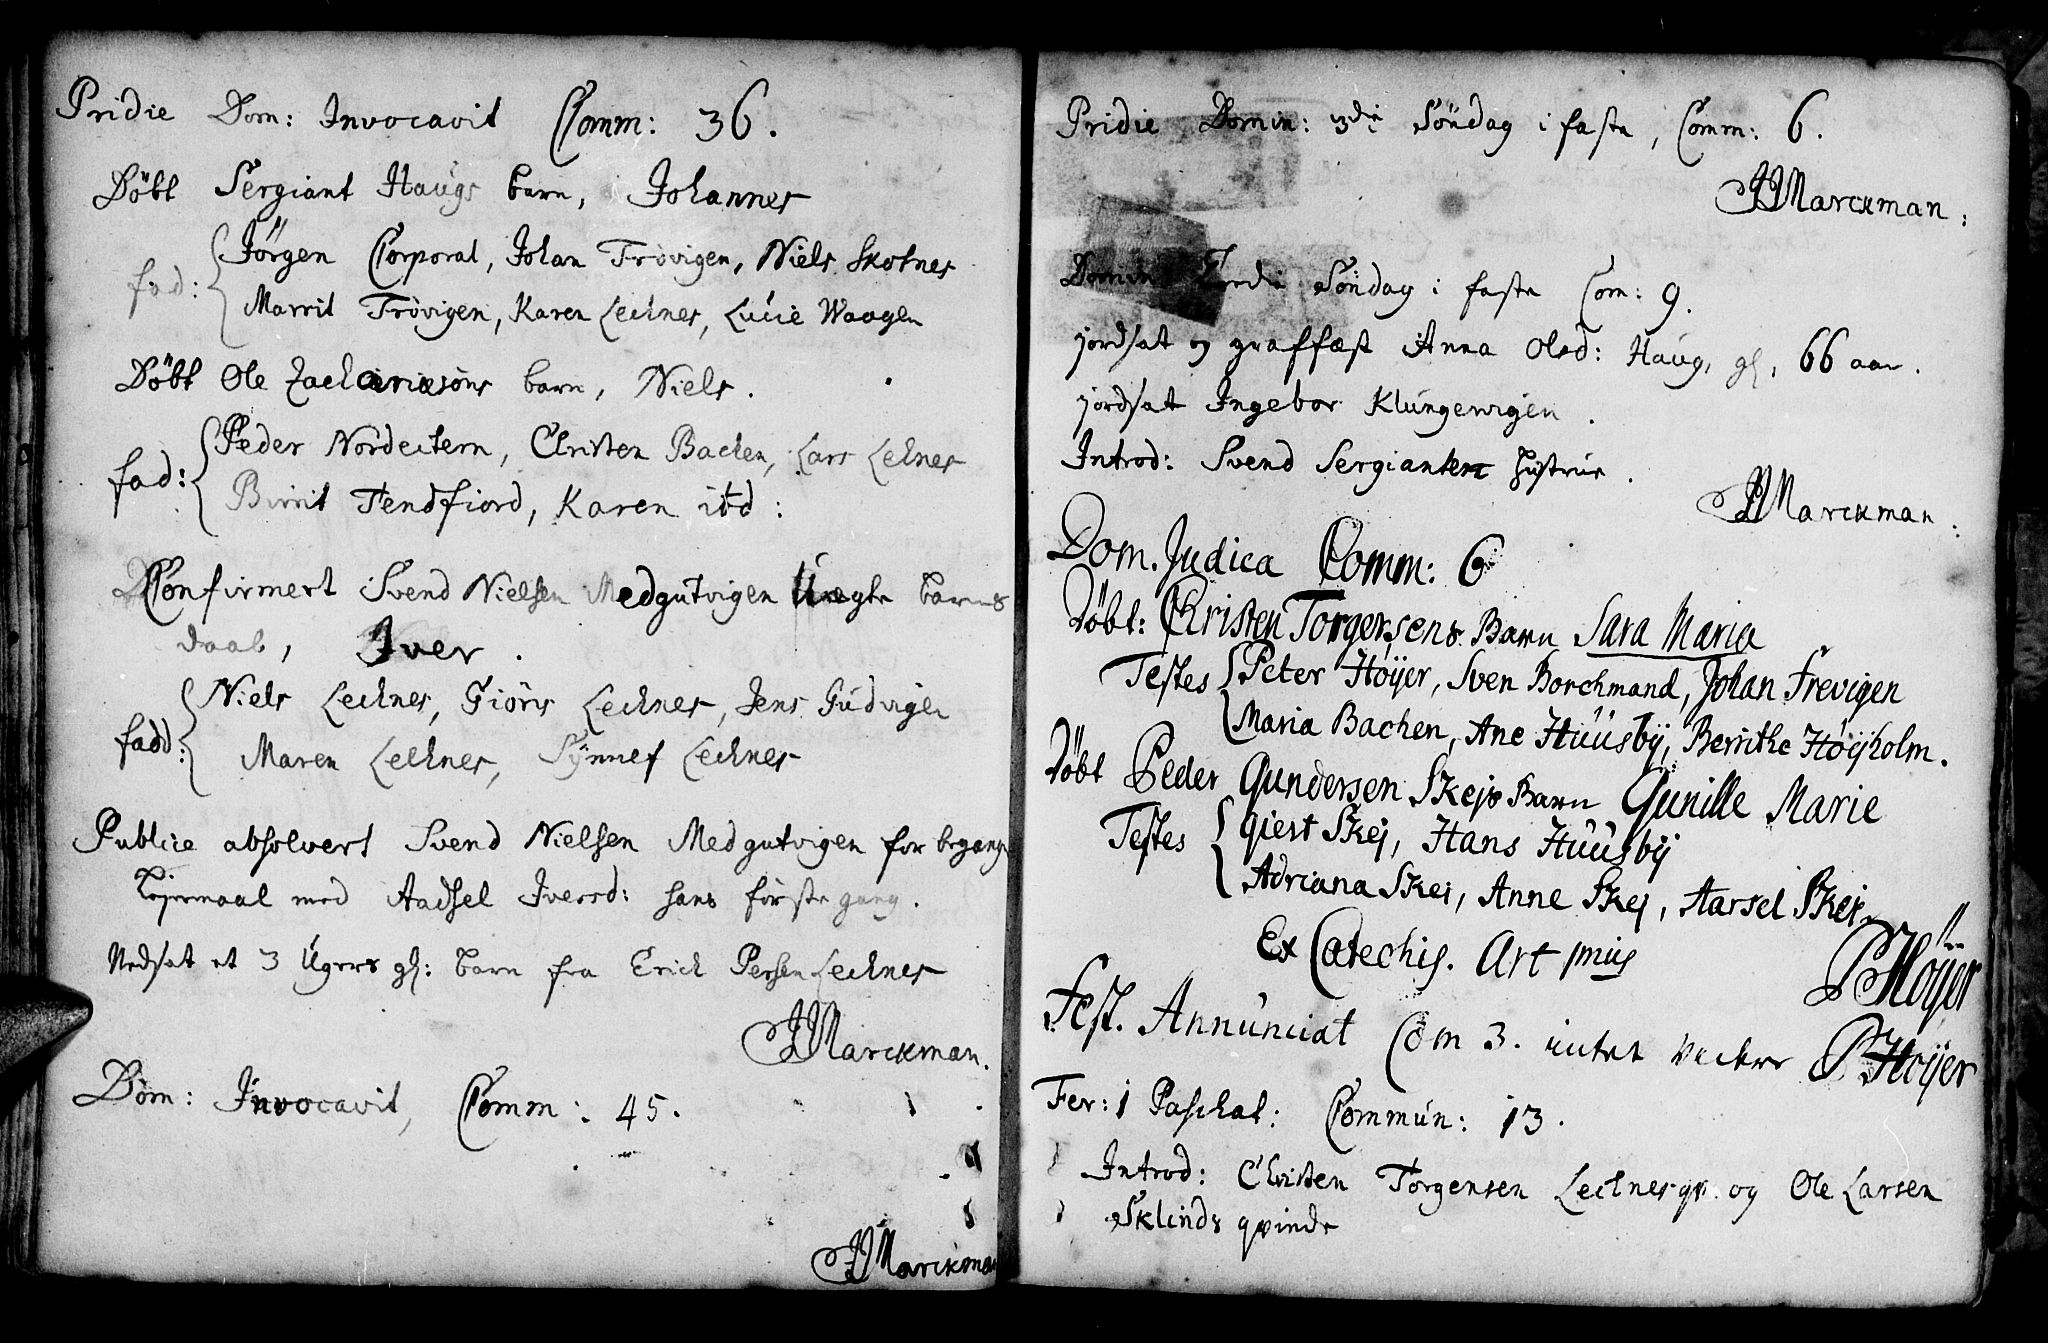 Pridie Dom: Invocavit Comm: 36.
Döbt Sergiant Haugs barn, Johannes
fad: Jörgen Corporal, Johan Trövigen, Niels Skotnes
Marrit Trövigen, Karen Lechnes, Lucie Waagen
Döbt Ole Zachariæsöns barn, Niels.
fad: Peder Nordeitern, Christen Bachen, Lars Lechnes
Birrit Tendfiord, Karen itd:
Confirmert Svend Nielsen Medgutvigen Uægte barns
daab, Iver.
fadd: Niels Lechnes, Giörs Lechnes, Jens Gudvigen
Maren Lechnes, Synnef Lechnes
Publice absolvert Svend Nielsen Medgutvigen for begangn
Lejermaal med Aadsel Iversd: hans förste gang.
Nedsat et 3 Ugers gl: barn fra Erich Persen Lechnes
JJMarckman.
Dom: Invocavit, Comm: 45.
JJMarckman
Pridie Domin: 3die Söndag i faste, Comm: 6.
JJMarckman:
Domin: Tredie Söndag i faste Com: 9.
jordsat og graffæst Anna Olsd: Haug, gl, 66 aar.
jordsat Ingebor Klungervigen.
Introd: Svend Sergianten Hustrue.
JJMarckman:
Dom. Judica Comm: 6
Döbt: Christen Torgersens Barn Sara Maria
Testes Peter Höyer, Sven Borchmand, Johan Frevigen
Maria Bachen, Ane Huusby, Berrithe Höyholm.
Döbt Peder Gundersen Skejs Barn Gunille Marie
Testes Giest Skej, Hans Huusby
Adriana Skei, Anne Skej, Aarsel Skej.
Ex Catechis. Art 1mus
PHöyer
Fest. Annunciat Com 3. intet vider PHöyer
Fer: 1 Paschat: Commun: 13.
Introd: Christen Torgensen Lechnes qv. og Ole Larsen
Sklinds qvinde